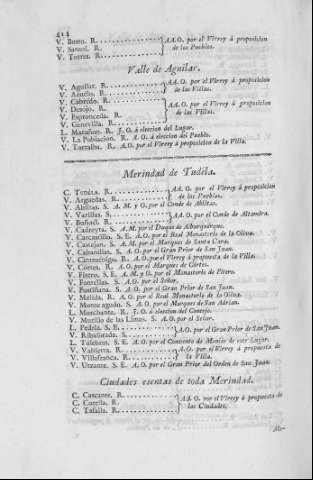 414
V. Busto. R. } AA.O. por el Virrey á proposicion
V. Sansol. R. } de los Pueblos.
V. Torres. R.
Valle de Aguilar.
V. Aguilar. R. } AA.O. por el Virrey á proposicion
V. Azuelo. R. } de las Villas.
V. Cabredo. R. } AA.O. por el Virrey á proposicion
V. Desojo. R. } de las Villas.
V. Espronceda. R.
V. Genevilla. R.
L. Marañon. R. J. O. á eleccion del Lugar.
V. La Poblacion. R. A. O. á eleccion del Pueblo.
V. Torralba. R. A.O. por el Virrey á proposicion de la Villa.
Merindad de Tudéla.
C. Tudéla. R. } AA.O. por el Virrey á proposicion
V. Arguedas. R. } de los Pueblos.
V. Ablitas. S. A. M. y O. por el Conde de Ablitas.
V. Varillas. S. } AA.O. por el Conde de Altamira.
V. Buñuel. R.
V. Cadreyta. S. A. M. por el Duque de Alburquerque.
V. Carcastillo. S. E. A.O. por el Real Monasterio de la Oliva.
V. Castejon. S. A. M. por el Marques de Santa Cara.
V. Cabanillas. S. A. O. por el Gran Prior de San Juan.
V. Cintruénigo. R. A. O. por el Virrey á propuesta de la Villa.
V. Córtes. R. A. O. por el Marques de Córtes.
V. Fitero. S. E. A. M. y O. por el Monasterio de Fitero.
V. Fontellas. S. A. O. por el Señor.
V. Fustiñana. S. A. O. por el Gran Prior de San Juan.
V. Mélida. R. A. O. por el Real Monasterio de la Oliva.
V. Monteagudo. S. A. O. por el Marques de San Adrian.
L. Murchante. R. J. O. á eleccion del Concejo.
V. Murillo de las Limas. S. A. O. por el Señor.
L. Pedriz. S. E. } A.O. por el Gran Prior de San Juan.
V. Ribaforada. S.
L. Tulebras. S. E. A.O. por el Convento de Monjas de este Lugar.
V. Valtierra. R. } A.O. por el Virrey á propuesta de
V. Villafranca. R. } la Villa.
V. Urzante. S. E. A. O. por el Gran Prior del Orden de San Juan.
Ciudades esentas de toda Merindad.
C. Cascante. R. } AA.O. por el Virrey á propuesta de
C. Corella. R. } las Ciudades.
C. Tafalla. R.